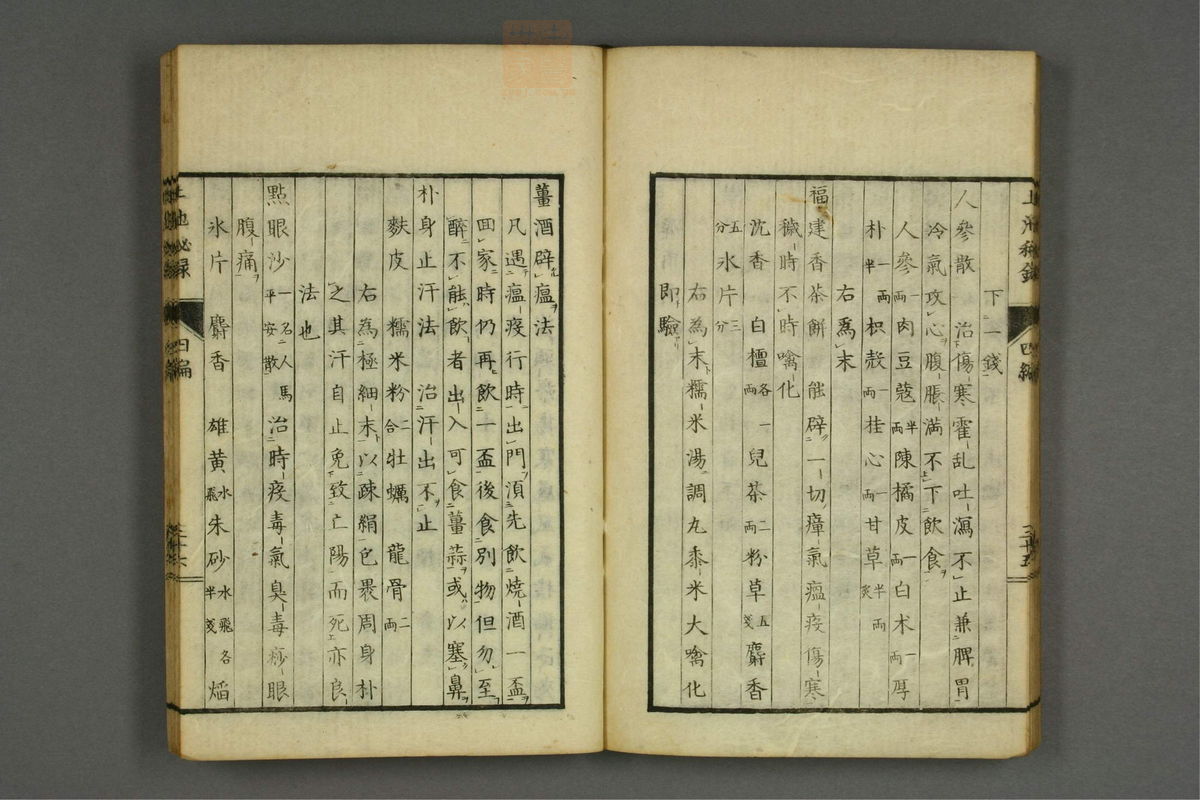 下一錢
人參散 治傷寒霍乱吐瀉不止兼脾胃
冷氣攻心腹脹滿不下飲食
人參一兩肉豆蔻半兩陳橘皮一兩白朮一兩厚
朴一兩半枳殼一兩桂心一兩甘草半兩炙
右爲末
福建香茶餅 能辟一切瘴氣瘟疫傷寒
穢時不時噙化
沈香 白檀各一兩 兒茶二兩粉草五錢麝香
五分氷片三分
右為末糯米湯調丸黍米大噙化
即驗
薑酒辟瘟法
凡遇瘟疫行時出門須先飲燒酒一盃
回家時仍再飲一盃後食別物但勿至
醉不能飲者出入可食薑蒜或以塞鼻
朴身止汗法 治汗出不止
麩皮 糯米粉二合牡蠣 龍骨二兩
右為極細末以疎絹包裹周身朴
之其汗自止免致亡陽而死亦良
法也
點眼沙一名人馬平安散 治時疫毒氣臭毒痧眼
腹痛
氷片 麝香 雄黄水飛朱砂水飛各半錢 焰
四編
四編